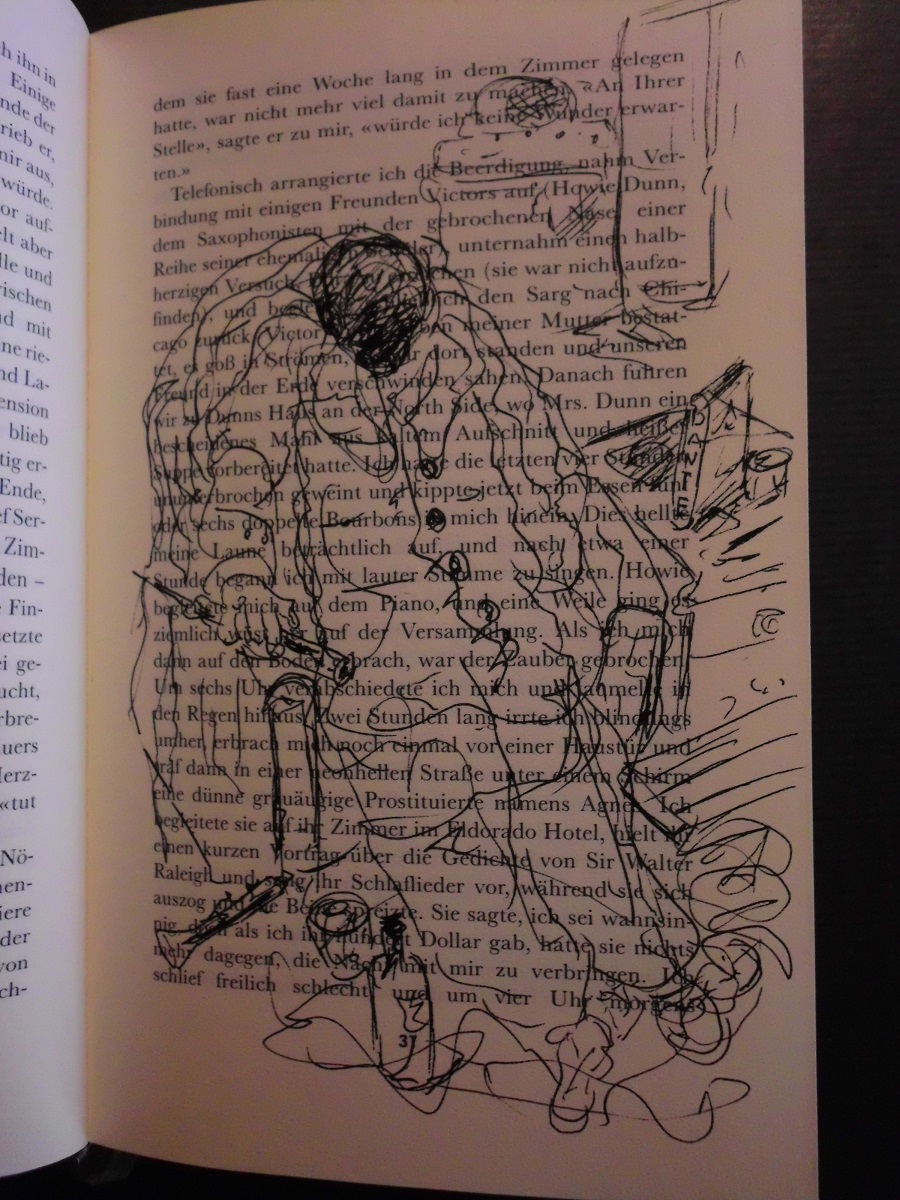 h ihn in
Einige
nde der
rieb er,
nir aus,
würde.
or auf-
elt aber
lle und
rischen
nd mit
ne rie-
nd La-
ension
blieb
tig er-
Ende,
ef Ser-
Zim-
den –
e Fin-
setzte
ei ge-
ucht,
rbre-
uers
Herz-
«tut
Nö-
nen-
iere
der
von
ch-
dem sie fast eine Woche lang in dem Zimmer gelegen
hatte, war nicht mehr viel damit zu machen. «An Ihrer
Stelle», sagte er zu mir, «würde ich keine Wunder erwar-
ten.»
Telefonisch arrangierte ich die Beerdigung, nahm Ver-
bindung mit einigen Freunden Victors auf (Howie Dunn,
dem Saxophonisten mit der gebrochenen Nase, einer
Reihe seiner ehemaligen Schüler), unternahm einen halb-
herzigen Versuch, (sie war nicht aufzu-
finden), und den Sarg nach Chi-
cago zurück. Victor neben meiner Mutter bestat-
tet, es goß in Strömen, dort standen und unseren
Freund in der Erde verschwinden sahen. Danach fuhren
wir zu Dunns Haus an der North Side, wo Mrs. Dunn ein
bescheidenes Mahl aus kaltem Aufschnitt und heißer
Suppe vorbereitet hatte. Ich hatte die letzten vier Stunden
ununterbrochen geweint und kippte jetzt beim Essen fünf
oder sechs doppelte Bourbons in mich hinein. Dies hellte
meine Laune beträchtlich auf, und nach etwa einer
Stunde begann ich mit lauter Stimme zu singen. Howie
begleitete mich auf dem Piano, und eine Weile ging es
ziemlich wüst her auf der Versammlung. Als ich mich
dann auf den Boden erbrach, war der Zauber gebrochen.
Um sechs Uhr verabschiedete ich mich und taumelte in
den Regen hinaus. Zwei Stunden lang irrte ich blindlings
umher, erbrach mich noch einmal vor einer Haustür und
traf dann in einer neonhellen Straße unter einem Schirm
eine dünne grauäugige Prostituierte namens Agnes. Ich
begleitete sie auf ihr Zimmer im Eldorado Hotel, hielt ihr
einen kurzen Vortrag über die Gedichte von Sir Walter
Raleigh und sang ihr Schlaflieder vor, während sie sich
auszog und die Beine spreizte. Sie sagte, ich sei wahnsin-
nig, doch als ich ihr hundert Dollar gab, hatte sie nichts
mehr dagegen, die Nacht mit mir zu verbringen. Ich
schlief freilich schlecht, und um vier Uhr morgens
DANTE